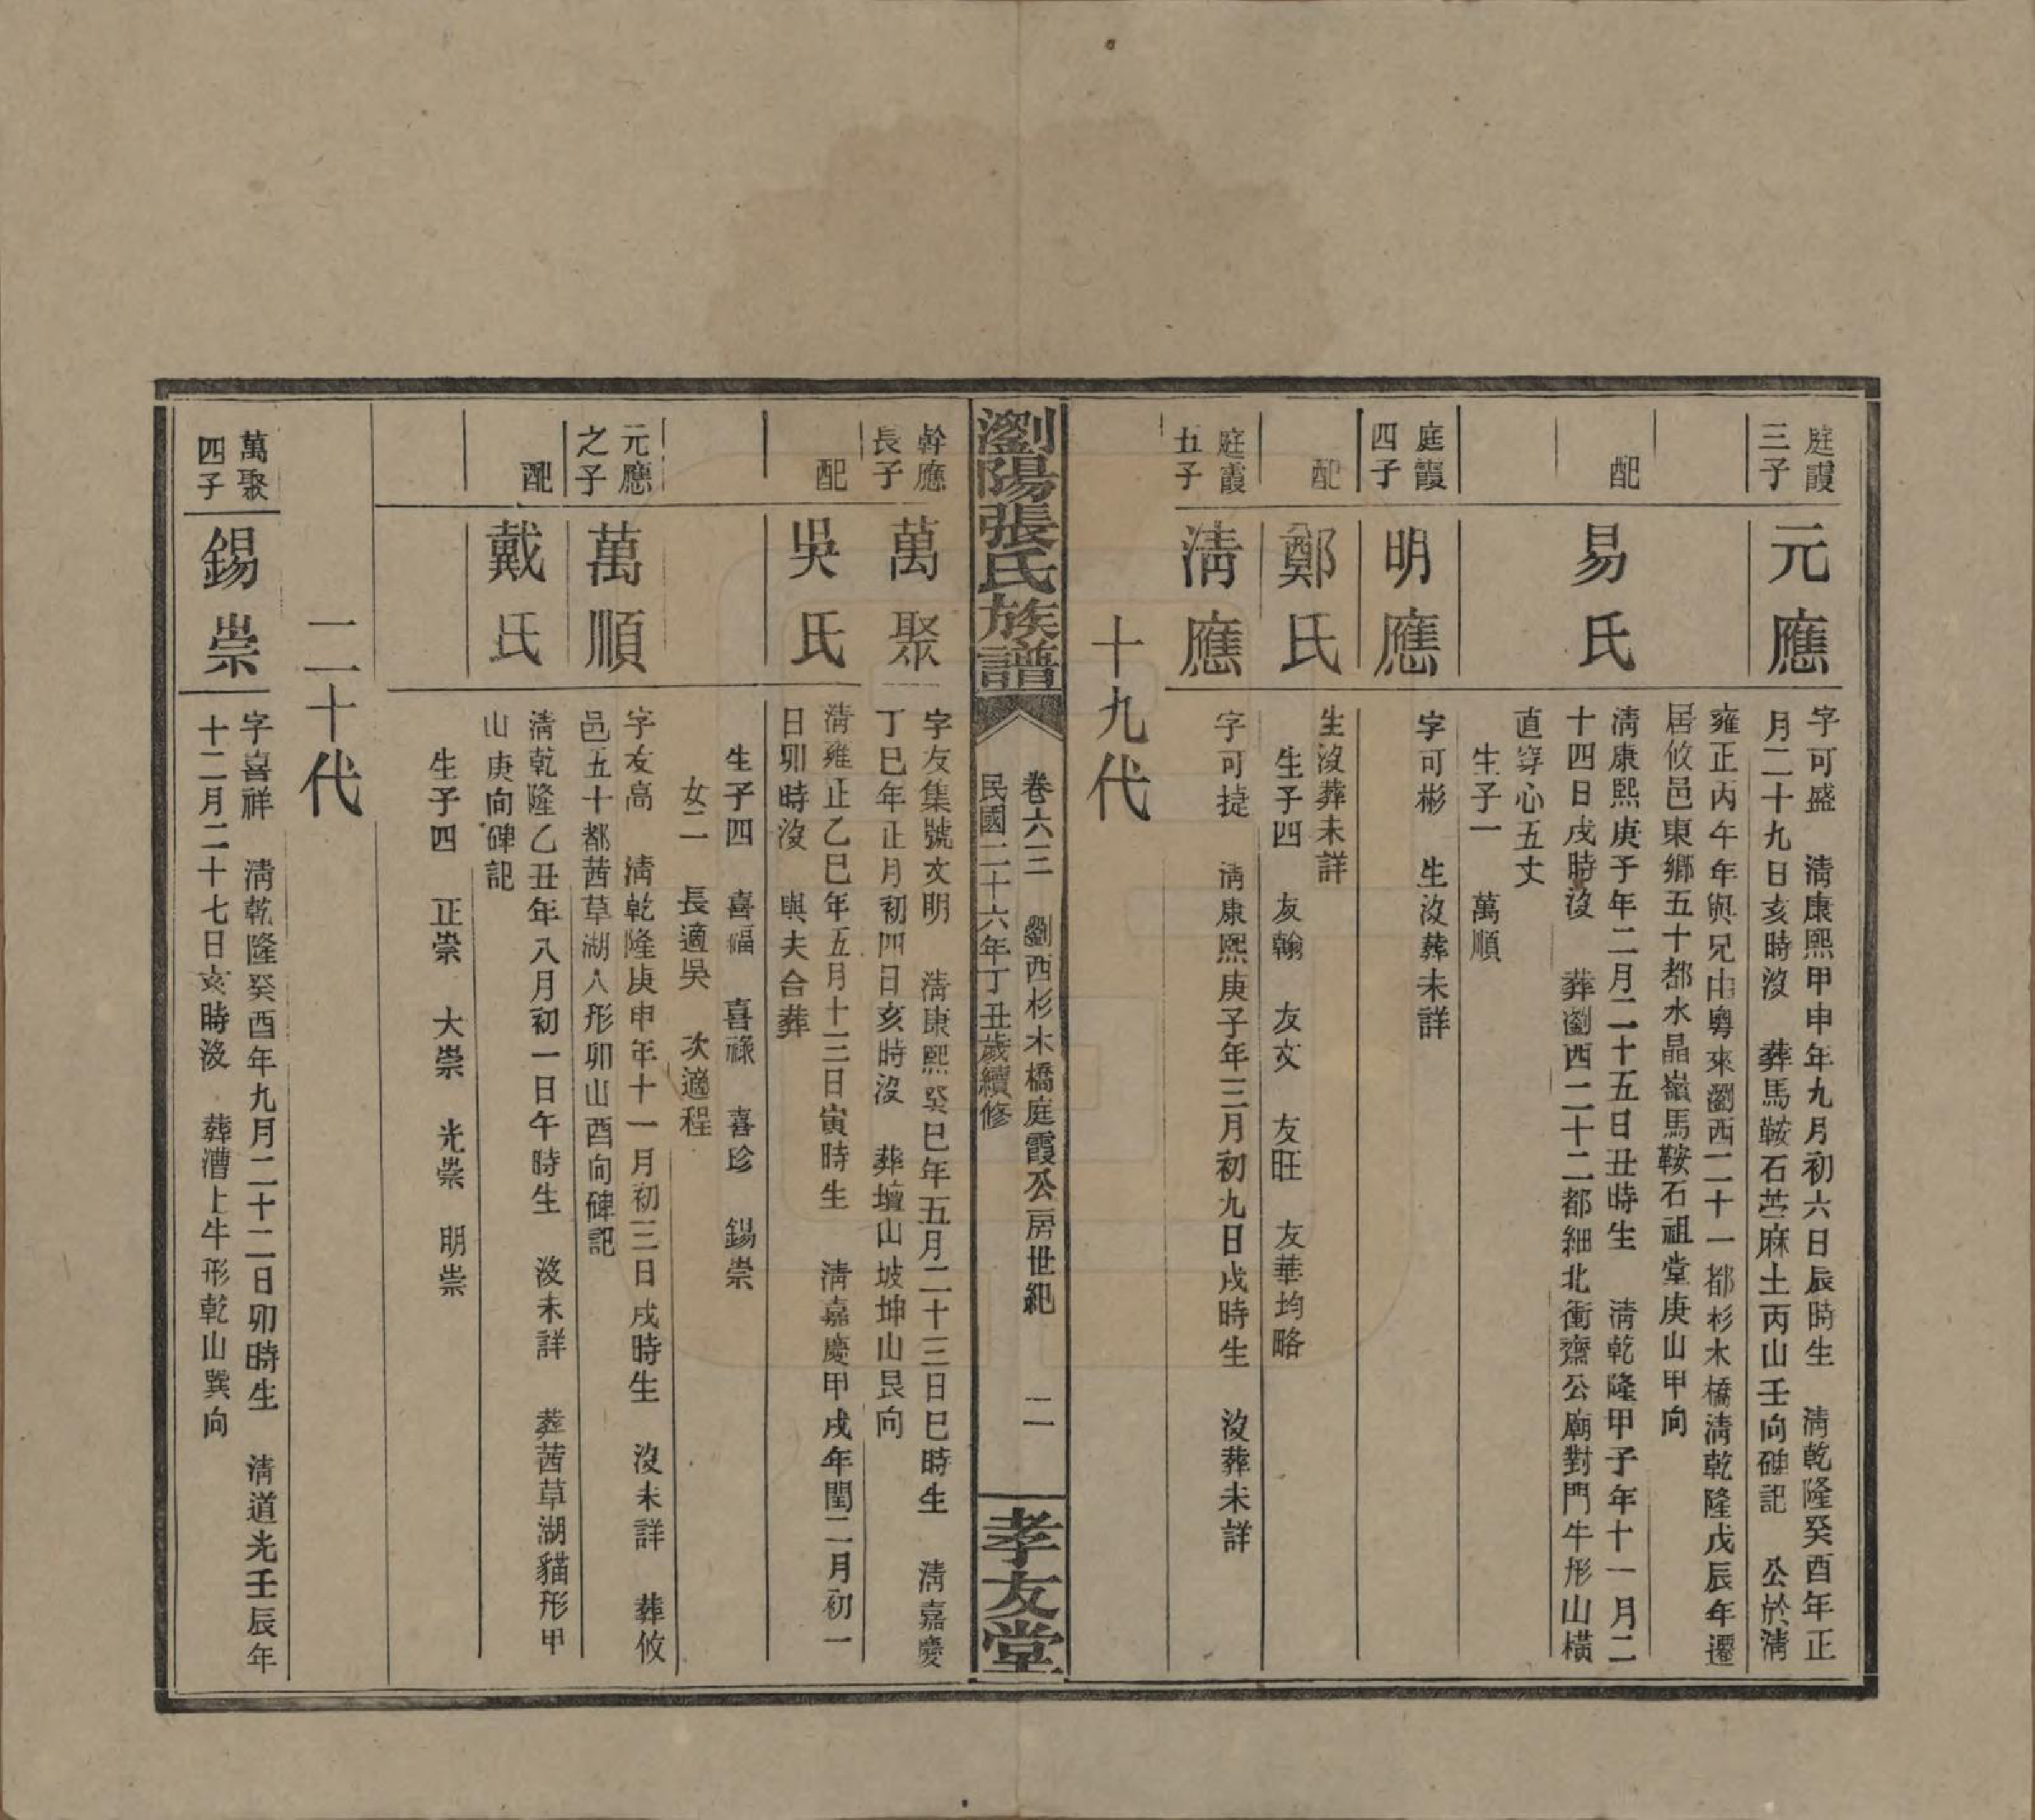 庭霞
三子
元應
字可盛　清康熙甲申年九月初六日辰時生　清乾隆癸酉年正
月二十九日亥時沒　葬馬鞍石苎麻土丙山壬向碑記　公於清
雍正丙午年與兄由粵來瀏西二十一都杉木橋清乾隆戊辰年遷
居攸邑東鄉五十都水晶嶺馬鞍石祖堂庚山甲向
配
易氏
清康熙庚子年二月二十五日丑時生　清乾隆甲子年十一月二
十四日戌時沒　葬瀏西二十二都細北衝齋公廟對門牛形山橫
直穿心五丈
生子一　萬順
庭霞
四子
明應
字可彬　生沒葬未詳
配
鄭氏
生沒葬未詳
生子四　友翰　友文　友旺　友華均略
庭霞
五子
清應
字可㨗　清康熙庚子年三月初九日戌時生　沒葬未詳
十九代
瀏陽張氏族譜
卷六三　瀏西杉木橋庭霞公房世紀　二
民國二十六年丁丑歲續修
孝友堂
幹應
長子
萬聚
字友集號文明　清康熙癸巳年五月二十三日巳時生　清嘉慶
丁巳年正月初四日亥時沒　葬壇山坡坤山艮向
配
吳氏
清雍正乙巳年五月十三日寅時生　清嘉慶甲戌年閏二月初一
日卯時沒　與夫合葬
生子四　喜福　喜祿　喜珍　錫崇
女二　長適吳　次適程
元應
之子
萬順
字友高　清乾隆庚申年十一月初三日戌時生　沒未詳　葬攸
邑五十都茜草湖人形卯山酉向碑記
配
戴氏
清乾隆乙丑年八月初一日午時生　沒未詳　葬茜草湖貓形甲
山庚向碑記
生子四　正崇　大崇　光崇　明崇
二十代
萬聚
四子
錫崇
字喜祥　清乾隆癸酉年九月二十二日卯時生　清道光壬辰年
十二月二十七日亥時沒　葬漕上牛形乾山巽向